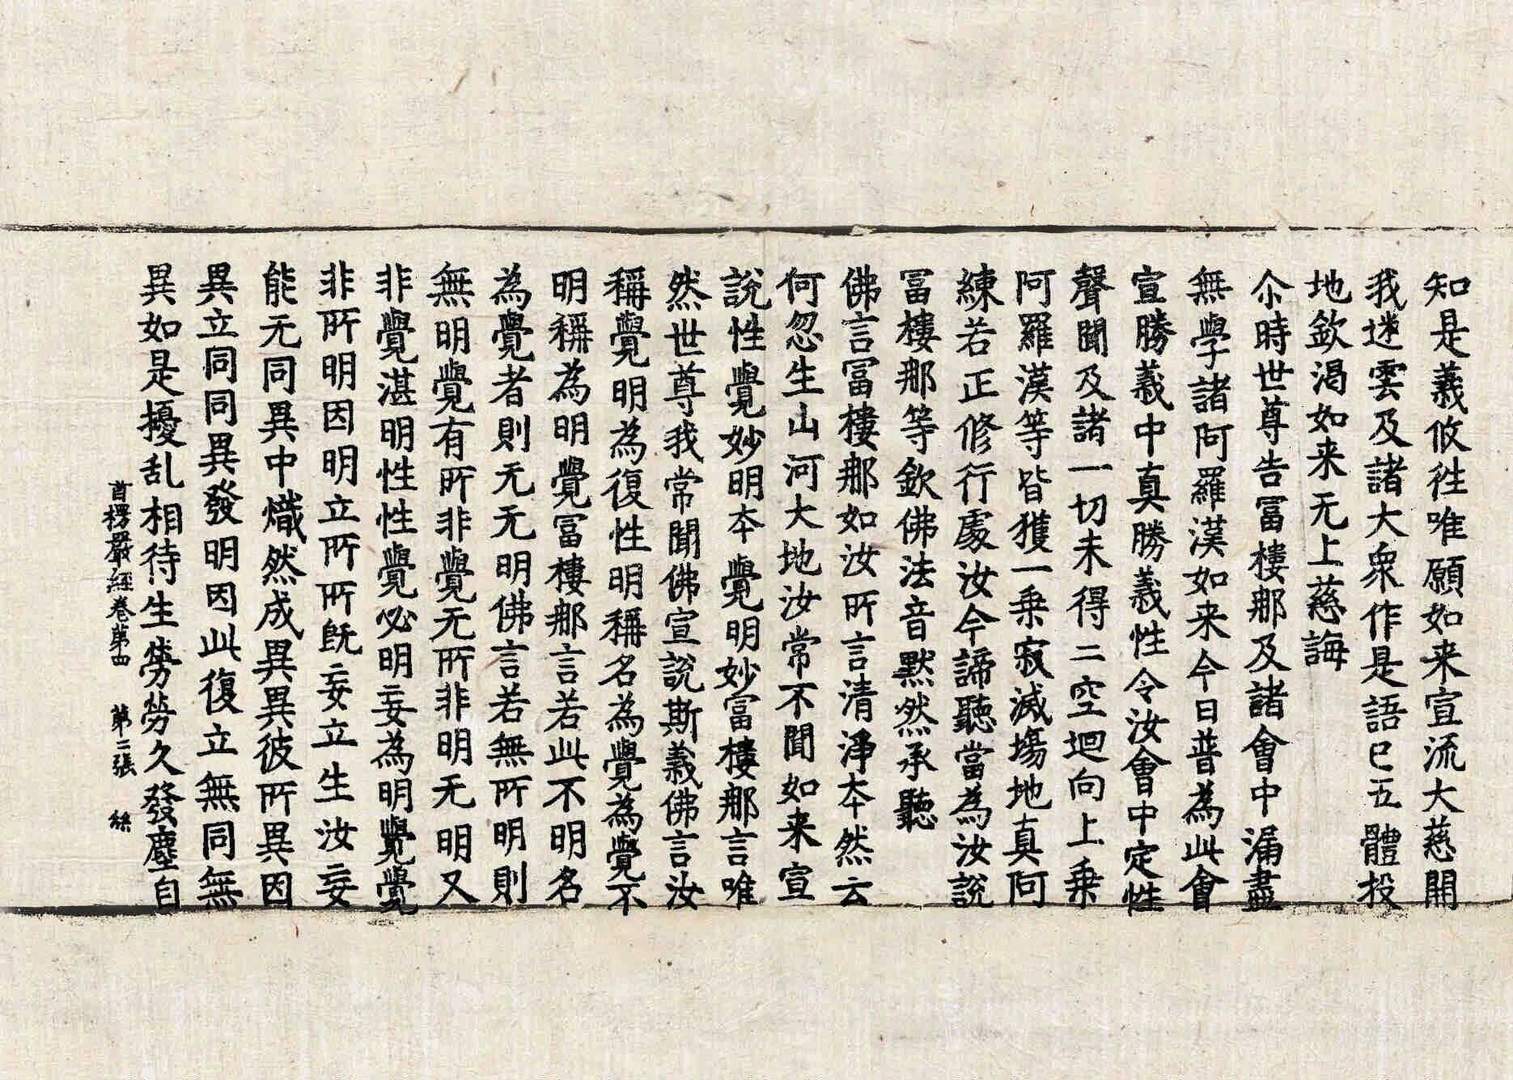 知是義攸徃唯願如来宣流大慈開
我迷雲及諸大衆作是語已五體投
地欽渴如来无上慈誨
尒時世尊告冨樓那及諸會中漏盡
無學諸阿羅漢如来今日普為此會
宣勝義中真勝義性令汝會中定性
聲聞及諸一切未得二空迴向上乗
阿羅漢等皆獲一乗寂滅場地真阿
練若正修行處汝今諦聽當為汝說
冨樓那等欽佛法音黙然承聽
佛言冨樓那如汝所言清淨本然云
何忽生山河大地汝常不聞如来宣
說性覺妙明本覺明妙冨樓那言唯
然世尊我常聞佛宣說斯義佛言汝
稱覺明為復性明稱名為覺為覺不
明稱為明覺冨樓那言若此不明名
為覺者則无无明佛言若無所明則
無明覺有所非覺无所非明无明又
非覺湛明性性覺必明妄為明覺覺
非所明因明立所所旣妄立生汝妄
能无同異中熾然成異異彼所異因
異立同同異發明因此復立無同無
異如是擾乱相待生勞勞久發塵自
首楞嚴經卷第四　第二張　絲